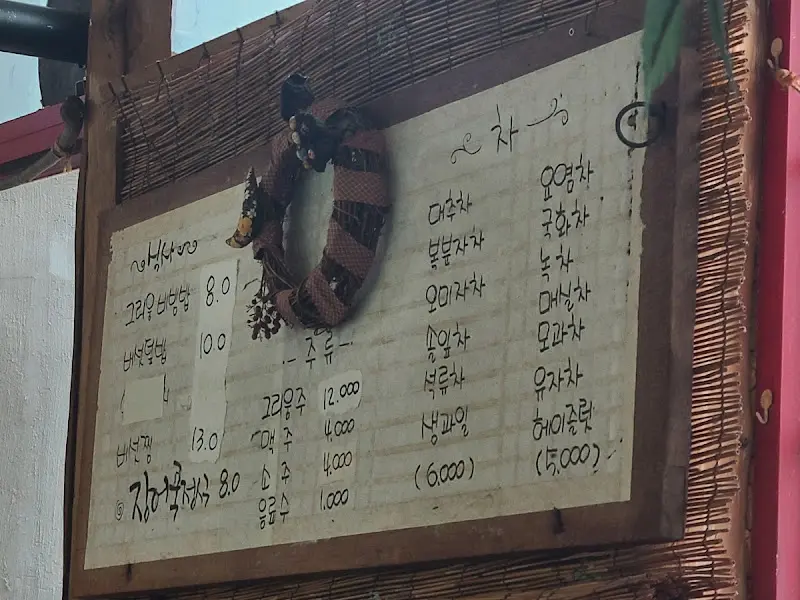 식사
그리움비빔밥 8.0
버섯덮밥 10.0
버섯전 13.0
장어국정식 8.0
주류
그리움주 12.000
맥주 4.000
소주 4.000
음료수 1.000
차
대추차
복분자차
오미자차
솔잎차
석류차
생과일
(6.000)
오염차
국화차
녹차
매실차
모과차
유자차
헤이즐럿
(5,000)